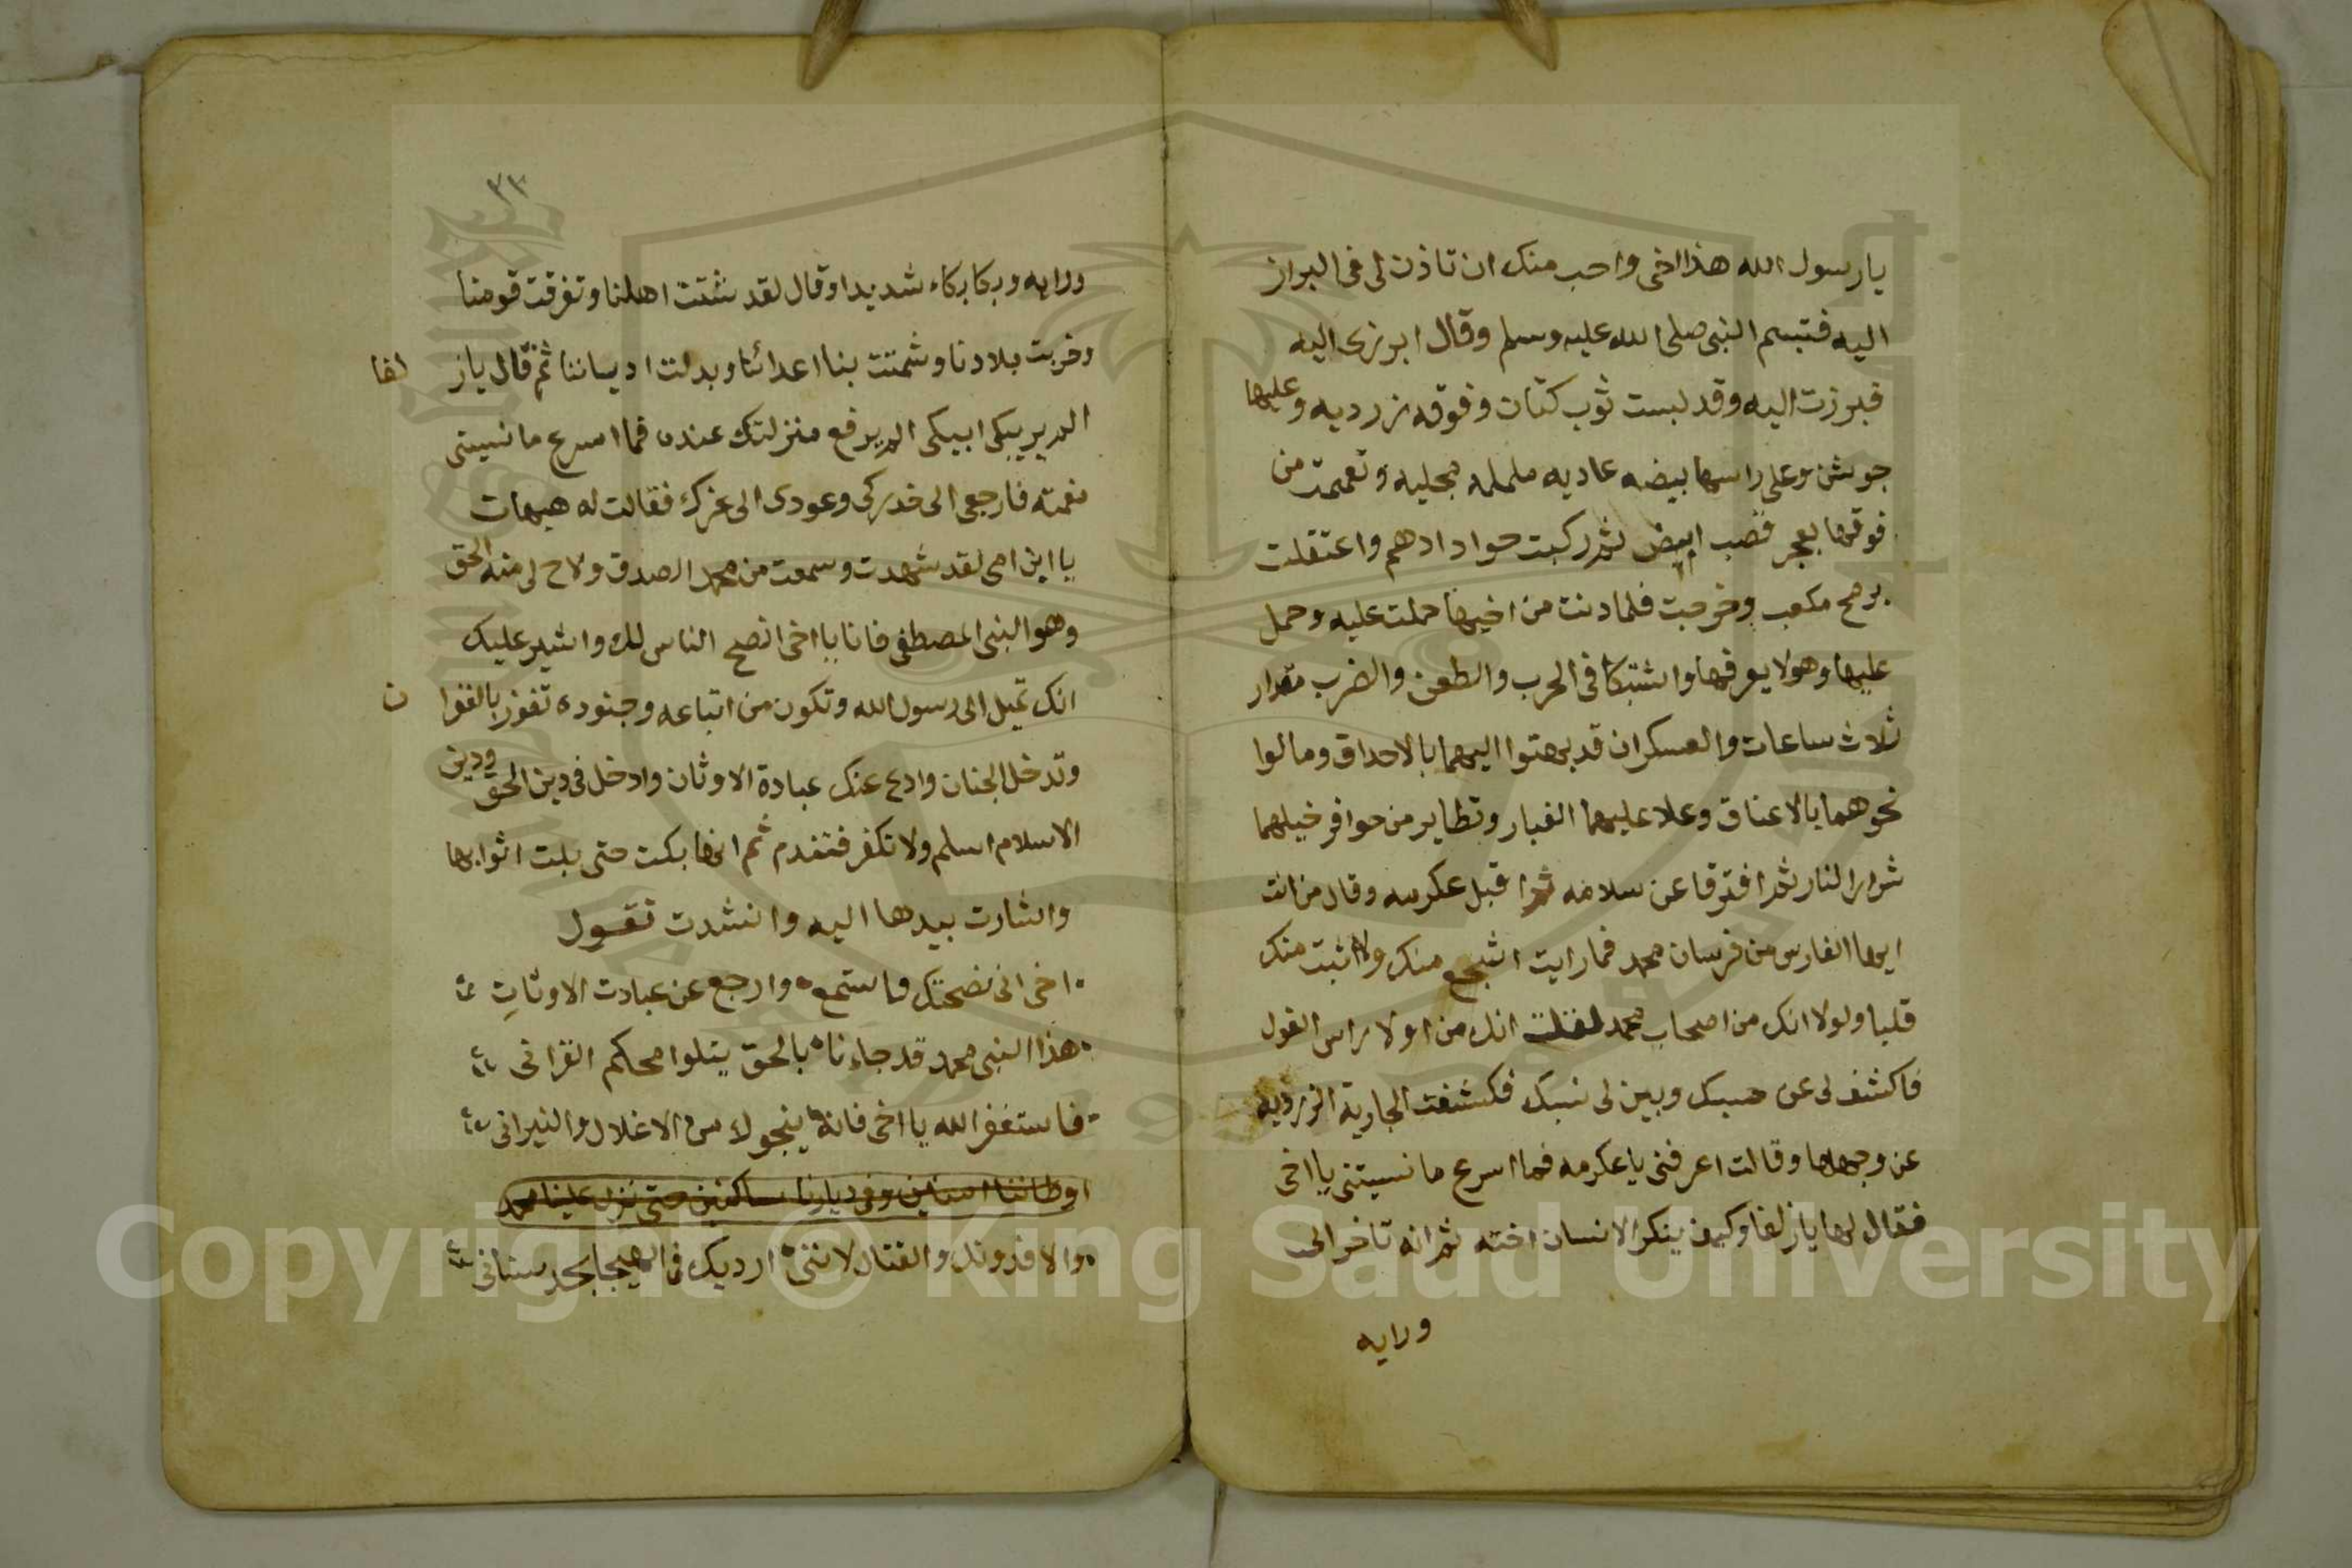 يارسول الله هذا اخى واحب منك ان تاذن لى فى البراز
اليه فتبسم النبى صلى الله عليه وسلم وقال ابرزى اليه
فبرزت اليه وقد لبست ثوب كتان وفوقه زرديه وعليها
جوشن وعلى راسها بيضه عاديه ململه مجليه وتعممت من
فوقها بعجر قصب ابيض ثم ركبت جواد ادهم واعتقلت
برمح مكعب وخرجت فلما دنت من اخيها حملت عليه وحمل
عليها وهو لا يعرفها واشتبكا فى الحرب والطعن والضرب مقدار
ثلاث ساعات والعسكران قد بهتوا اليهما بالاحداق ومالوا
نحوهما بالاعناق وعلا عليهما الغبار وتطاير من حوافر خيلهما
شرار النار ثم افترقا عن سلامه ثم اقبل عكرمه وقال من انت
ايها الفارس من فرسان محمد فما رايت اشجع منك ولا اثبت منك
قلبا ولولا انك من اصحاب محمد لقلت انك من اولا راس الغول
فاكشف لى عن حسبك وبين لى نسبك فكشفت الجارية الزرديه
عن وجهها وقالت اعرفنى يا عكرمه فما اسرع ما نسيتنى يا اخى
فقال لها يا زلفا وكيف ينكر الانسان اخته ثم انه تاخر الى
ورايه
٣٣
ورايه وبكا بكاء شديدا وقال لقد شتت اهلنا وتفرقت قومنا
وخربت بلادنا وشمتت بنا اعدائنا وبدلت اديساننا ثم قال ياز لفا
الم يربيكى ابيكى الم يرفع منزلتك عنده فما اسرع ما نسيتى
نعمته فارجعى الى خدركى وعودى الى عزك فقالت له هيهات
يا ابن امى لقد شهدت وسمعت من محمد الصدق ولاح لى منه الحق
وهو النبى المصطفى فانا يا اخى انصح الناس لك واشير عليك
انك تميل الى رسول الله وتكون من اتباعه وجنوده تفوز بالغفرا ن
وتدخل الجنان وادع عنك عبادة الاوثان وادخل فى دين الحق ودين
الاسلام اسلم ولا تكفر فتندم ثم انها بكت حتى بلت اثوابها
واشارت بيدها اليه وانشدت تقول
اخى انى نصحتك فاستمع وارجع عن عبادت الاوثانِ
هذا النبى محمد قد جاءنا بالحق يتلوا محكم القرانى
فاستغفر الله يا اخى فانه ينجوك من الاغلال والنيرانى
اوطاننا امنين وفى ديارنا ساكنين حتى نزل علينا محمد
والا فدونك والقتال لاننى ارديك فى الهيجا بحد سنانى
Copyright © King Saud University